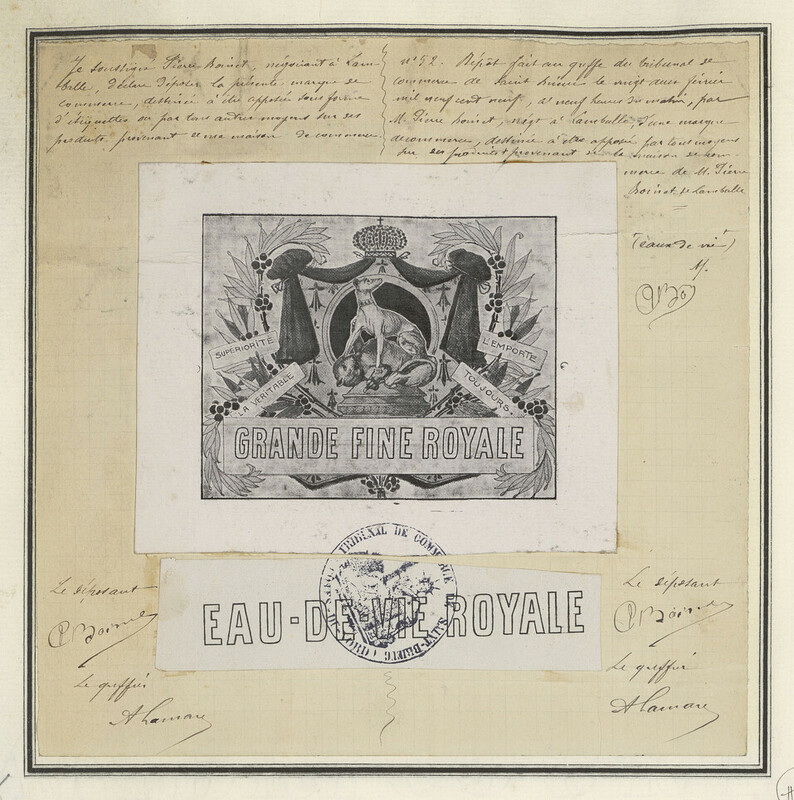 Je soussigné Pierre Boinet, négociant à Lam-
balle, déclare déposer la présente marque de
commerce, destinée à être apposée sous forme
d'étiquettes ou par tous autres moyens sur les
produits provenant de ma maison de commerce.
n° 52. Dépôt fait au greffe du tribunal de
commerce de Saint Brieuc le vingt deux février
mil neuf cent neuf, à neuf heures du matin, par
M. Pierre Boinet, négt à Lamballe, d'une marque
de commerce, destinée à être apposée par tous moyens
sur les produits provenant de la maison de com-
merce de M. Pierre
Boinet de Lamballe
(eaux de vie)
SUPÉRIORITÉ
L'EMPORTE
LA VÉRITABLE
TOUJOURS.
GRANDE FINE ROYALE
TRIBUNAL DE COMMERCE
SAINT-BRIEUC
EAU-DE-VIE ROYALE
Le déposant
PBoinet
Le greffier
ALamare
Le déposant
PBoinet
Le greffier
ALamare